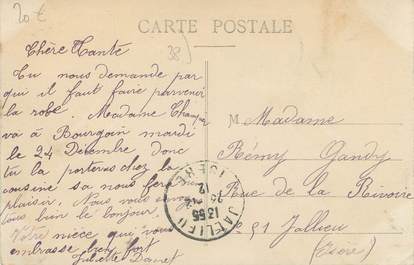 20 €
CARTE POSTALE
38)
Chère Tante
Tu nous demande par
qui il faut faire parvenir
la robe. Madame
va à Bourgoin mardi
le 24 Décembre donc
tu la porteras chez la
cousine sa nous fera bien
plaisir. Nous vous
tous bien le bonjour.
Votre nièce qui vous
embrasse bien fort
Juliette
M Madame
Rémy Gandy
Rue de la Rivoire
Jallieu
(Isère)
JALLIEU
ISERE